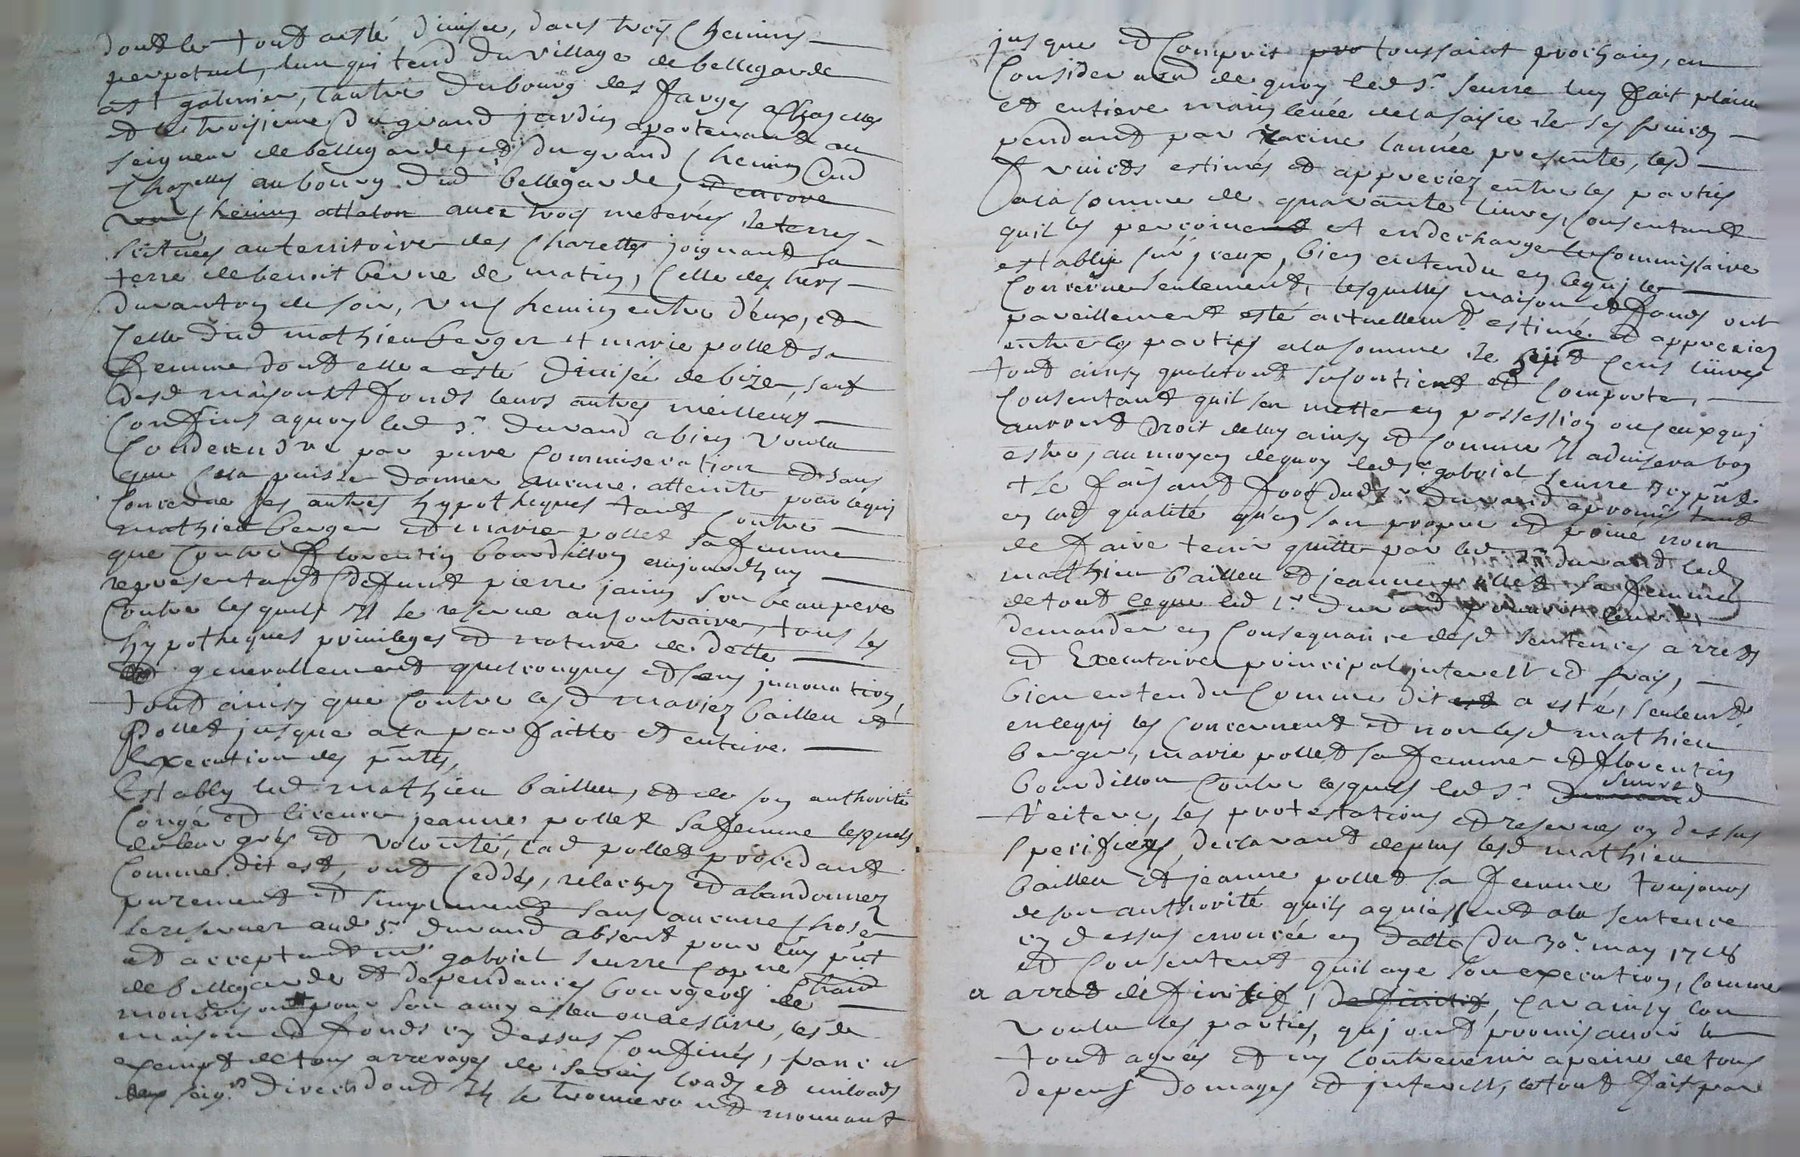 dont le tout a esté divisé, dans trois chemins
perpetuel, l'un qui tend du village de bellegarde
a St galmier, l'autre du bourg des farges a chazelles
et le troisieme du grand jardin apartenant au
seigneur de bellegarde, et du grand chemin dud
chazelles au bourg dud bellegarde, et encore
un chemin attalon avec trois meterées de terres
scituées au territoire des chazettes joignant la
terre de benoit berne de matin, celle des hers
duranton de soir, un chemin entre d'eux, et
celle dud mathieu berger et marie pollet sa
femme dont elle a esté divisée de bize, sauf
desd maison et fonds leurs autres meilleurs
confins a quoy led sr. durand a bien voulu
condecendre par pure commiseration et sans
que cela puisse donner aucune atteinte pour ce qui
concerne ses autres hypotheques tant contre
mathieu berger et marie pollet sa femme
que contre florentin bourdillon aujourdhuy
representant deffunt pierre janin son beau pere
contre lesquels il se reserve au contraire, tous les
hypotheques privileges et nature de dette
et generallement quelconques et sans innovation,
tout ainsy que contre lesd mariez bailleu et
pollet jusque a la parfaitte et entiere
execution des pntes,
Estably led mathieu bailleu, et de son authorité
conge et licence jeanne pollet sa femme lesquels
de leur grés et volonté, lad pollet procedant
comme dit est, ont ceddés, relachez et abandonnez
purement et simplement sans aucune chose
se reserver aud sr. durand absent pour luy pnt
et acceptant mr. gabriel seurre capne chatn
de bellegarde et dependances bourgeois de
montbrison pour son amy esleu ou a eslire, lesd
maison et fonds cy dessus confinés, francs et
exempt de tous arrerages de servis loads et milods
des seigrs. directs dont il se trouveront mouvant
jusque et compris pro toussaint prochain, en
consideration de quoy led sr. seurre luy fait pleine
et entiere main levée de la saisie de ses fruicts
pendant par racine l'année presente, lesd
fruicts estimés et appreciez entre les parties
a la somme de quarante livres, consentant
quil les perçoivent et en decharge le commissaire
establi sur iceux, bien entendu en ce qui le
concerne seulement, lesquelles maison et fonds ont
pareillement esté actuellemt estimé et appreciez
entre les parties a la somme de sept cens livres
tout ainsy que le tout se contient et comporte,
consentant quil s'en mette en possession ou ceux qui
auront droit de luy ainsy et comme il advisera bon
estre, au moyen de quoy led sr. gabriel seurre icy pnt
et se faisant fort dud sr. durand a promis tant
en lad qualité qu'en son propre et privé nom
de faire tenir quitte par led sr. durand led
mathieu bailleu et jeanne pollet sa femme
de tout ce que led sr. durand pouvoit leurs
demander en consequance desd sentences arrets
et executoires principal interest et frais,
bien entendu comme dit est a esté, seulemt
en ce qui les concernent et non lesd mathieu
berger, marie pollet sa femme et florentin
bourdillon contre lesquels led sr. durand seurre
reitere, les protestations et reserves cy dessus
specifiez, declarant de plus lesd mathieu
bailleu et jeanne pollet sa femme toujours
de son authorité quils aquiessent a la sentence
cy dessus enoncée en datte du 30e. may 1718
et consentent quil aye son execution, comme
a arrest definitif, definitif, car ainsy l'on
voulu les parties, qui ont promis avoir le
tout agrées et n'y contrevenir a peine de tous
depens domages et interests, le tout fait par